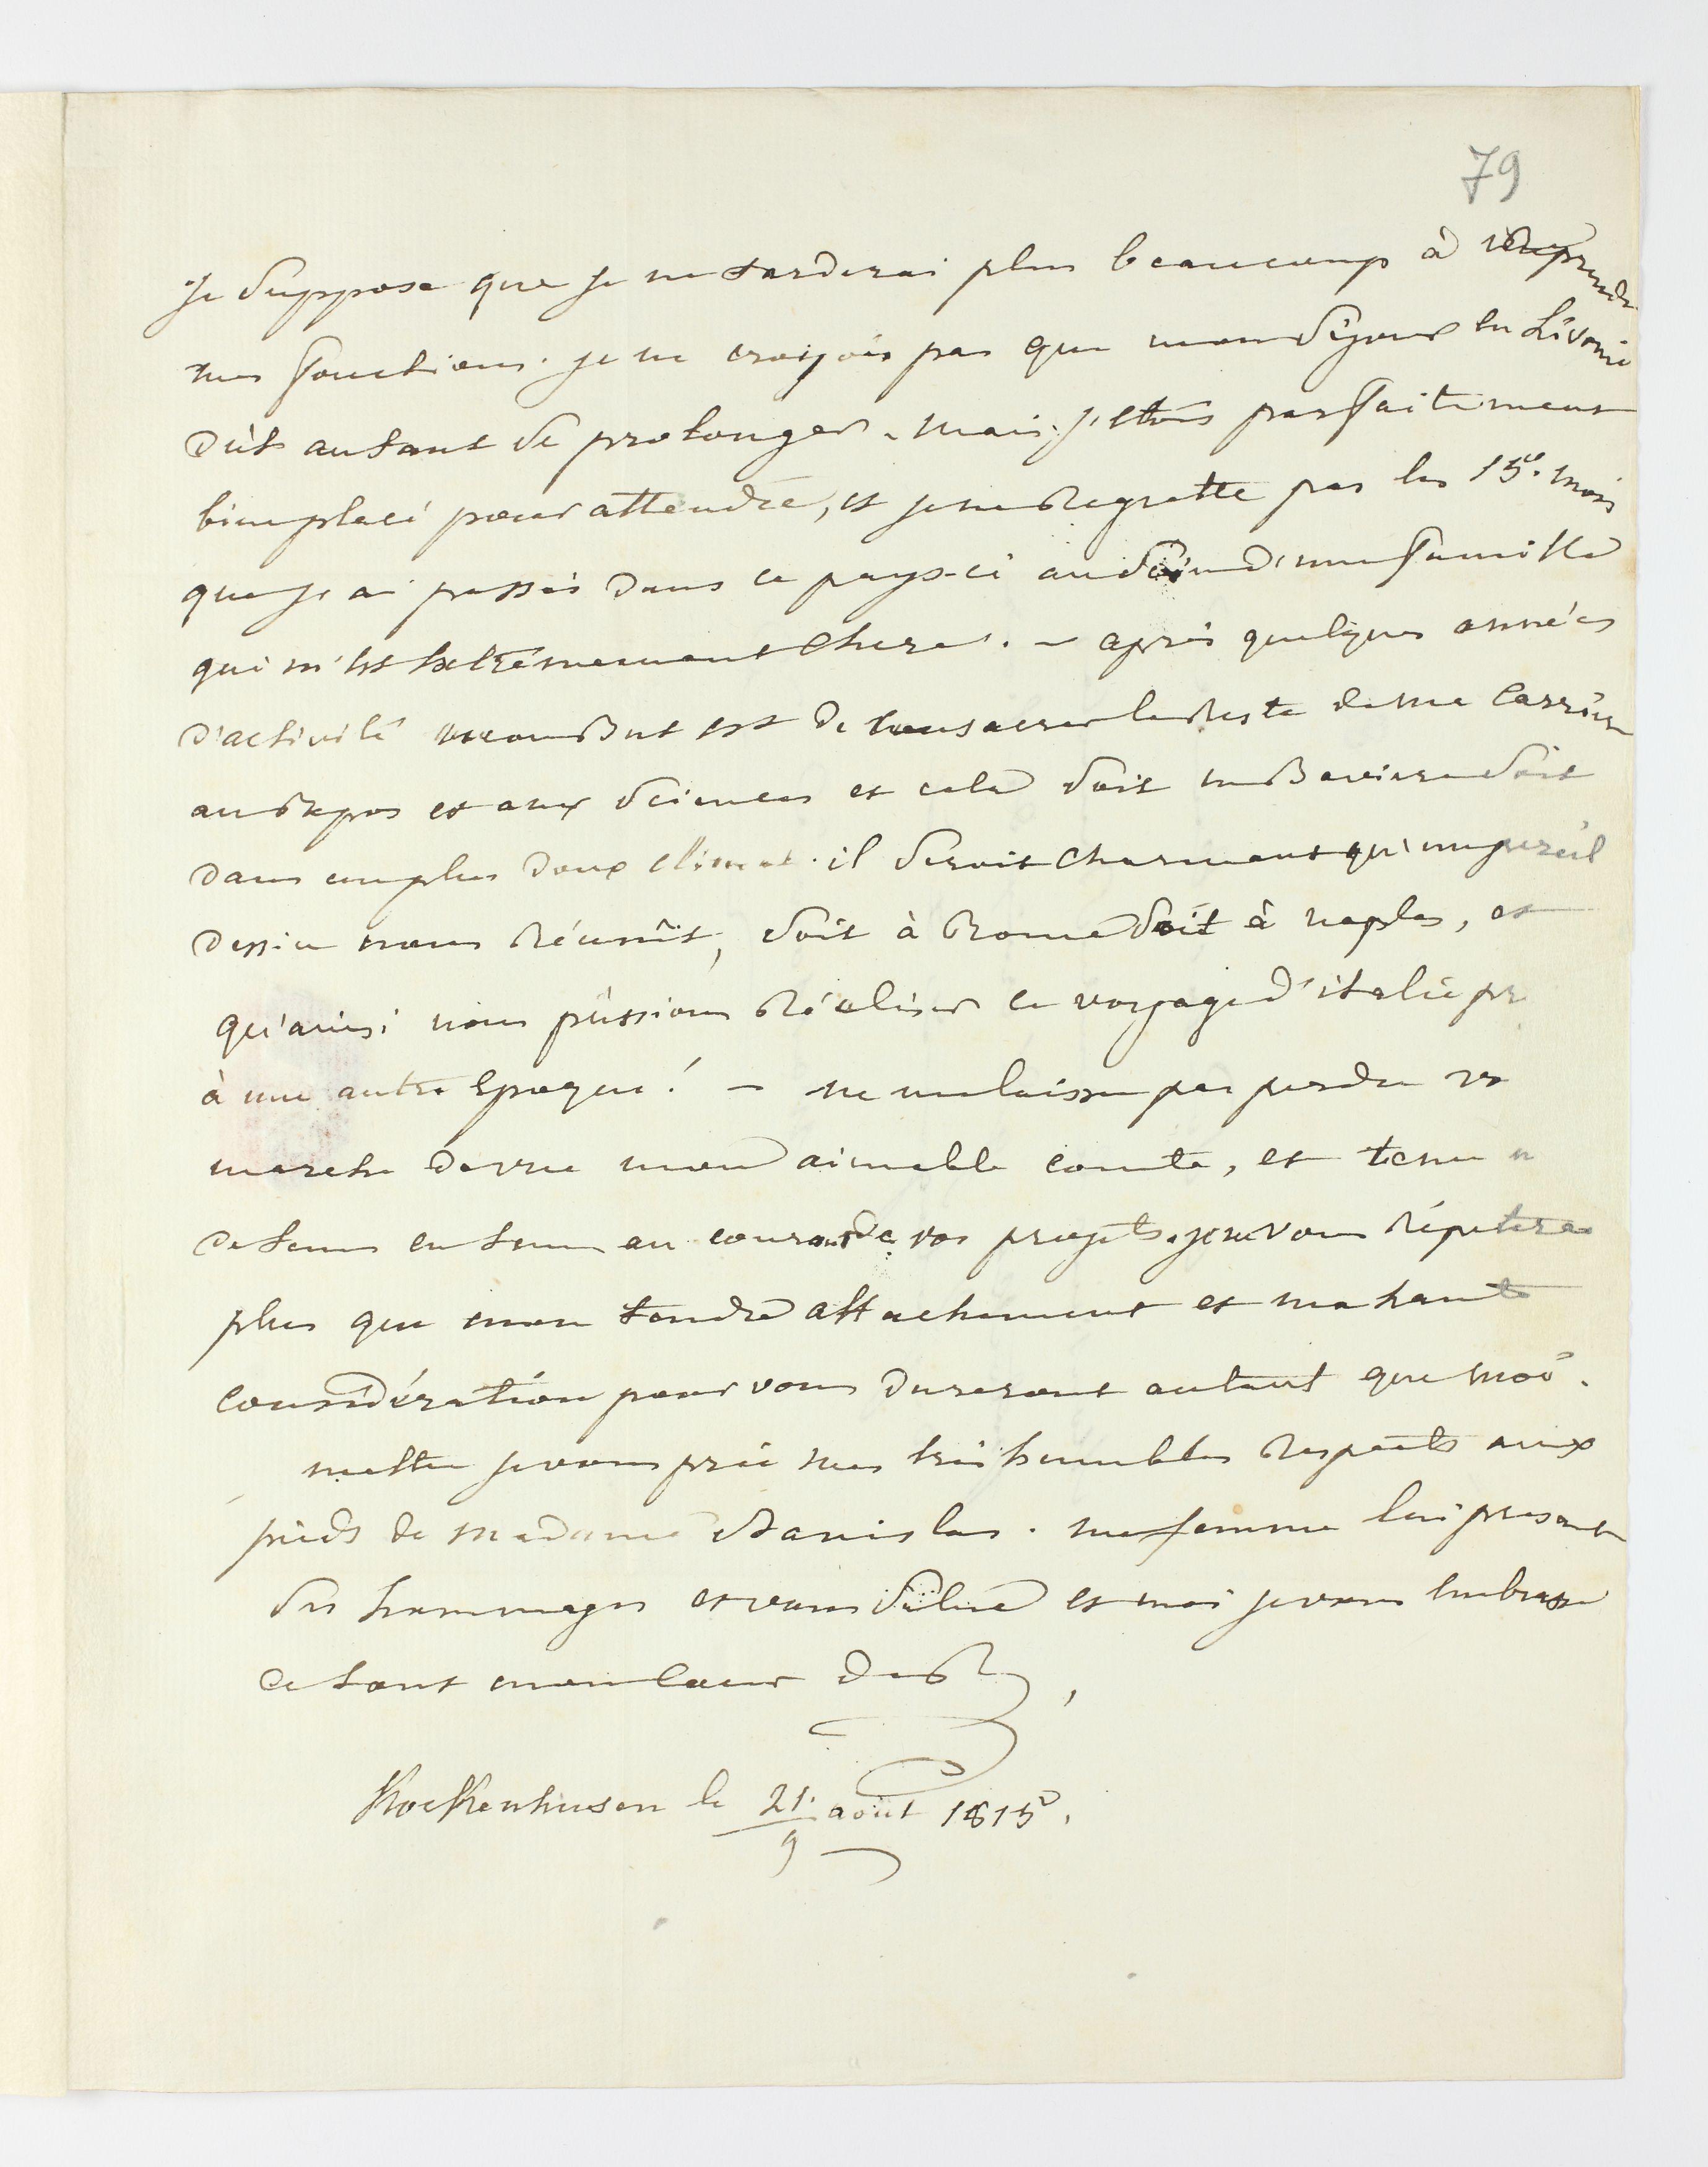 79
je suppose que je ne tarderai plus beaucoup à reprendre
mes fonctions. je ne croyois pas que mon séjour en Livonie
dût autant se prolonger. mais j'etois parfaitement
bien placé pour attendre, et je ne regrette pas les 15. mois
que j'ai passés dans ce pays-ci au sein d'une famille
qui m'est extrémement chere. – après quelques années
d'activité mon but est de consacrer le reste de ma carriere
au repos et aux sciences et cela soit en Baviere soit
dans un plus doux climat. il seroit charmant qu'un pareil
dessin nous réunît, soit à Rome soit à naples, et
qu'ainsi nous pûssions réaliser ce voyage d'italie pr
à une autre epoque! – ne me laissez pas perdre vo
marche de vue mon aimable comte, et tenez m
de tems en tems au courant de vos projets. je ne vous répeterai
plus que mon tendre attachement et ma haute
considération pour vous dureront autant que moi.
mettez je vous prie mes très humbles respects aux
pieds de madame Stanislas. ma femme lui presente
ses hommages et vous salue et moi je vous embrasse
de tout mon coeur de B
Kockenhusen le 21./9 août 1815.